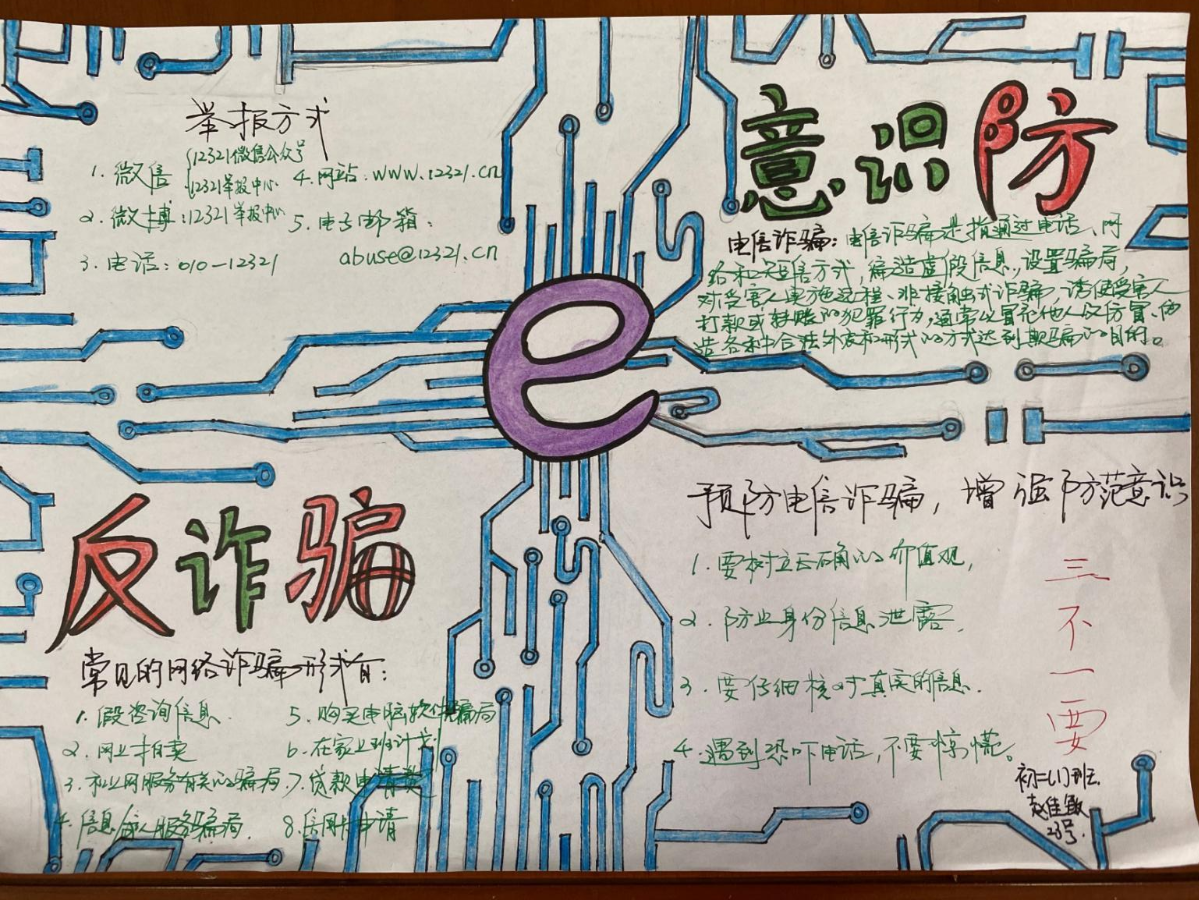 举报方式
1. 微信 {12321微信公众号
12321举报中心
2. 微博:12321举报中心
3. 电话:010-12321
4. 网站:www.12321.cn
5. 电子邮箱:
abuse@12321.cn
意识防
电信诈骗:电信诈骗是指通过电话、网
络和短信方式,编造虚假信息,设置骗局,
对受害人实施远程、非接触式诈骗,诱使受害人
打款或转账的犯罪行为,通常以冒充他人及仿冒、伪
造各种合法外衣和形式的方式达到欺骗的目的。
e
反诈骗
常见的网络诈骗形式有:
1. 假咨询信息
2. 网上拍卖
3. 和上网服务有关的骗局
4. 信息 服务骗局.
5. 购买电脑软件骗局
6. 在家上班计划
7. 贷款申请费
8. 信用卡申请
预防电信诈骗,增强防范意识
1. 要树立正确的价值观,
2. 防止身份信息泄露.
3. 要仔细核对真实的信息.
4. 遇到恐吓电话,不要惊慌。
三
不
一
要
初二(1)班
赵佳敏
23号.